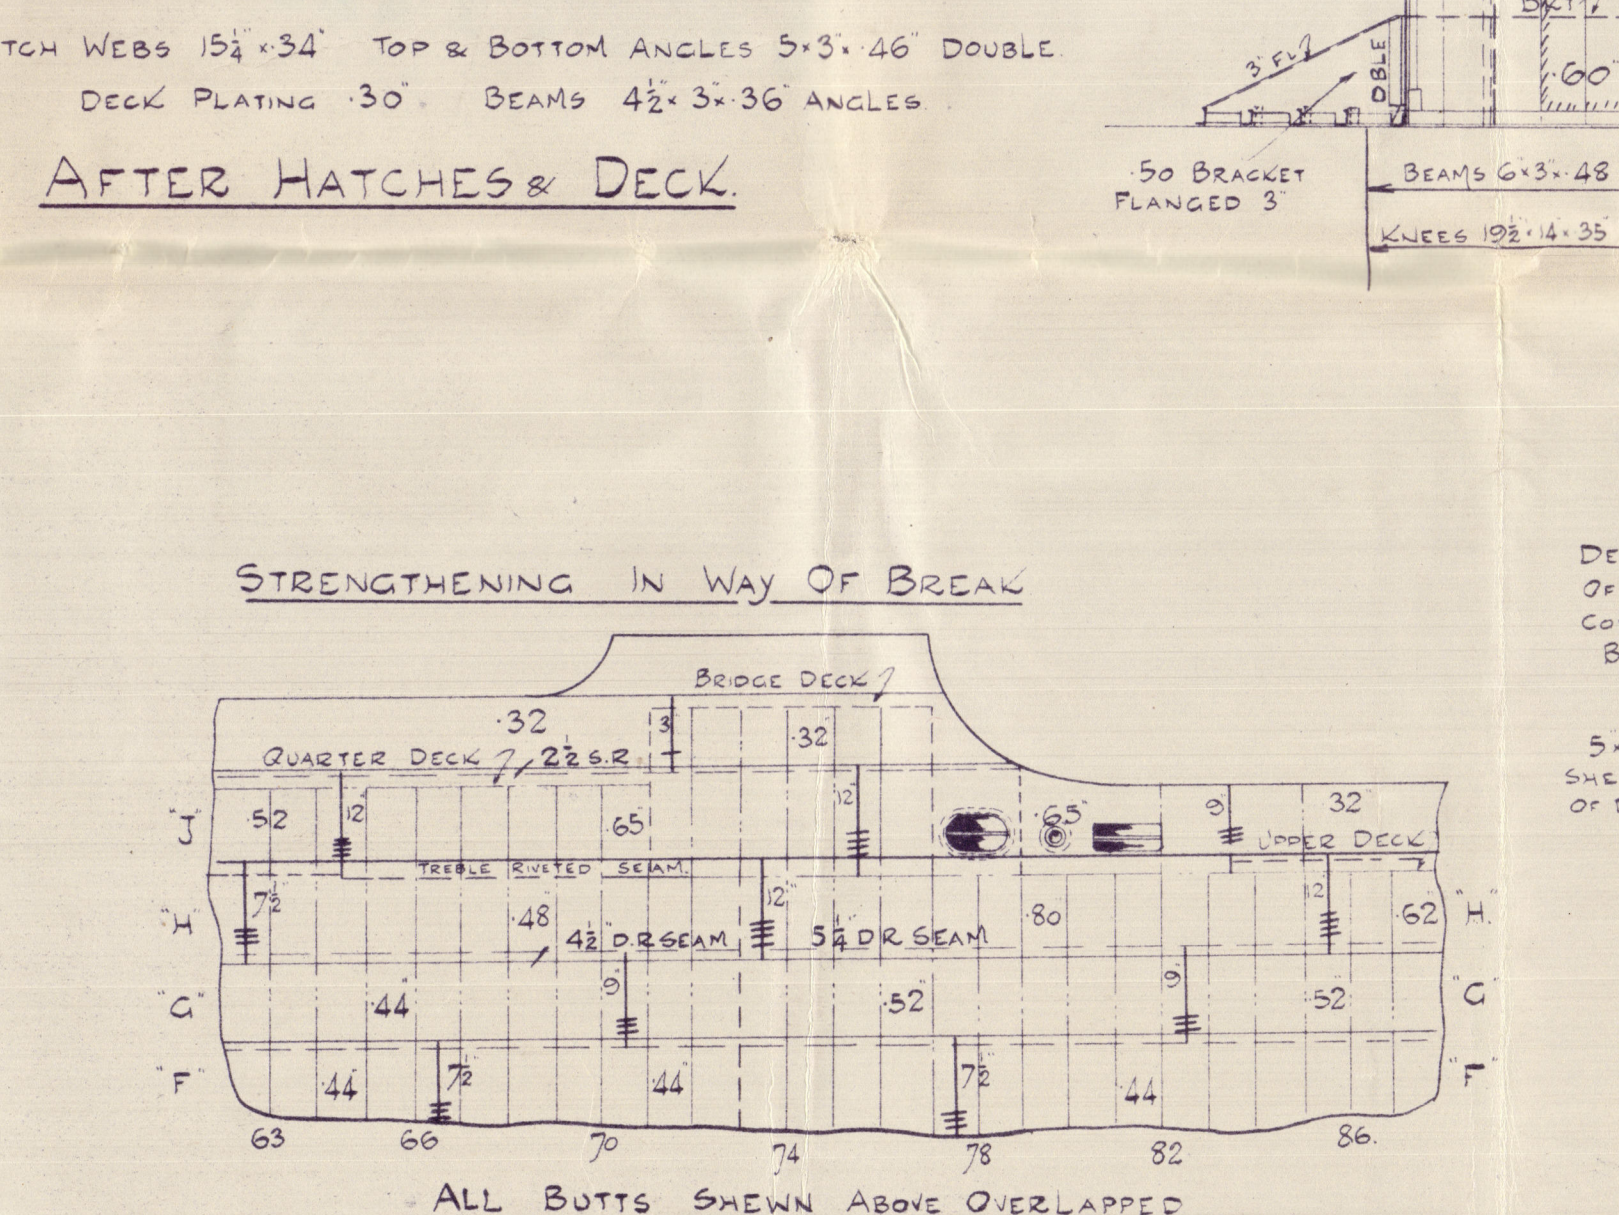 TCH WEBS 15¼" × .34" TOP & BOTTOM ANGLES 5×3"×.46" DOUBLE.
DECK PLATING .30". BEAMS 4½"×3"×.36" ANGLES.
AFTER HATCHES & DECK.
3" FL
DBLE
.60"
.50 BRACKET
FLANGED 3"
BEAMS 6"×3"×.48
KNEES 19½"×14"×.35
STRENGTHENING IN WAY OF BREAK
BRIDGE DECK
.32
3"
.32"
QUARTER DECK 2½" S.R
"J"
.52
12"
.65"
12"
.65"
9"
32"
UPPER DECK
TREBLE RIVETED SEAM.
"H"
7½"
.48"
4½" D.R SEAM
12"
5¼" D R SEAM
.80"
12"
.62"
"H."
"G"
.44"
9"
.52"
9"
.52"
"G"
"F"
.44"
7½"
.44"
7½"
.44"
"F"
63 66 70 74 78 82 86.
ALL BUTTS SHEWN ABOVE OVERLAPPED
DE
OF
CO
B
5×
SHE
OF